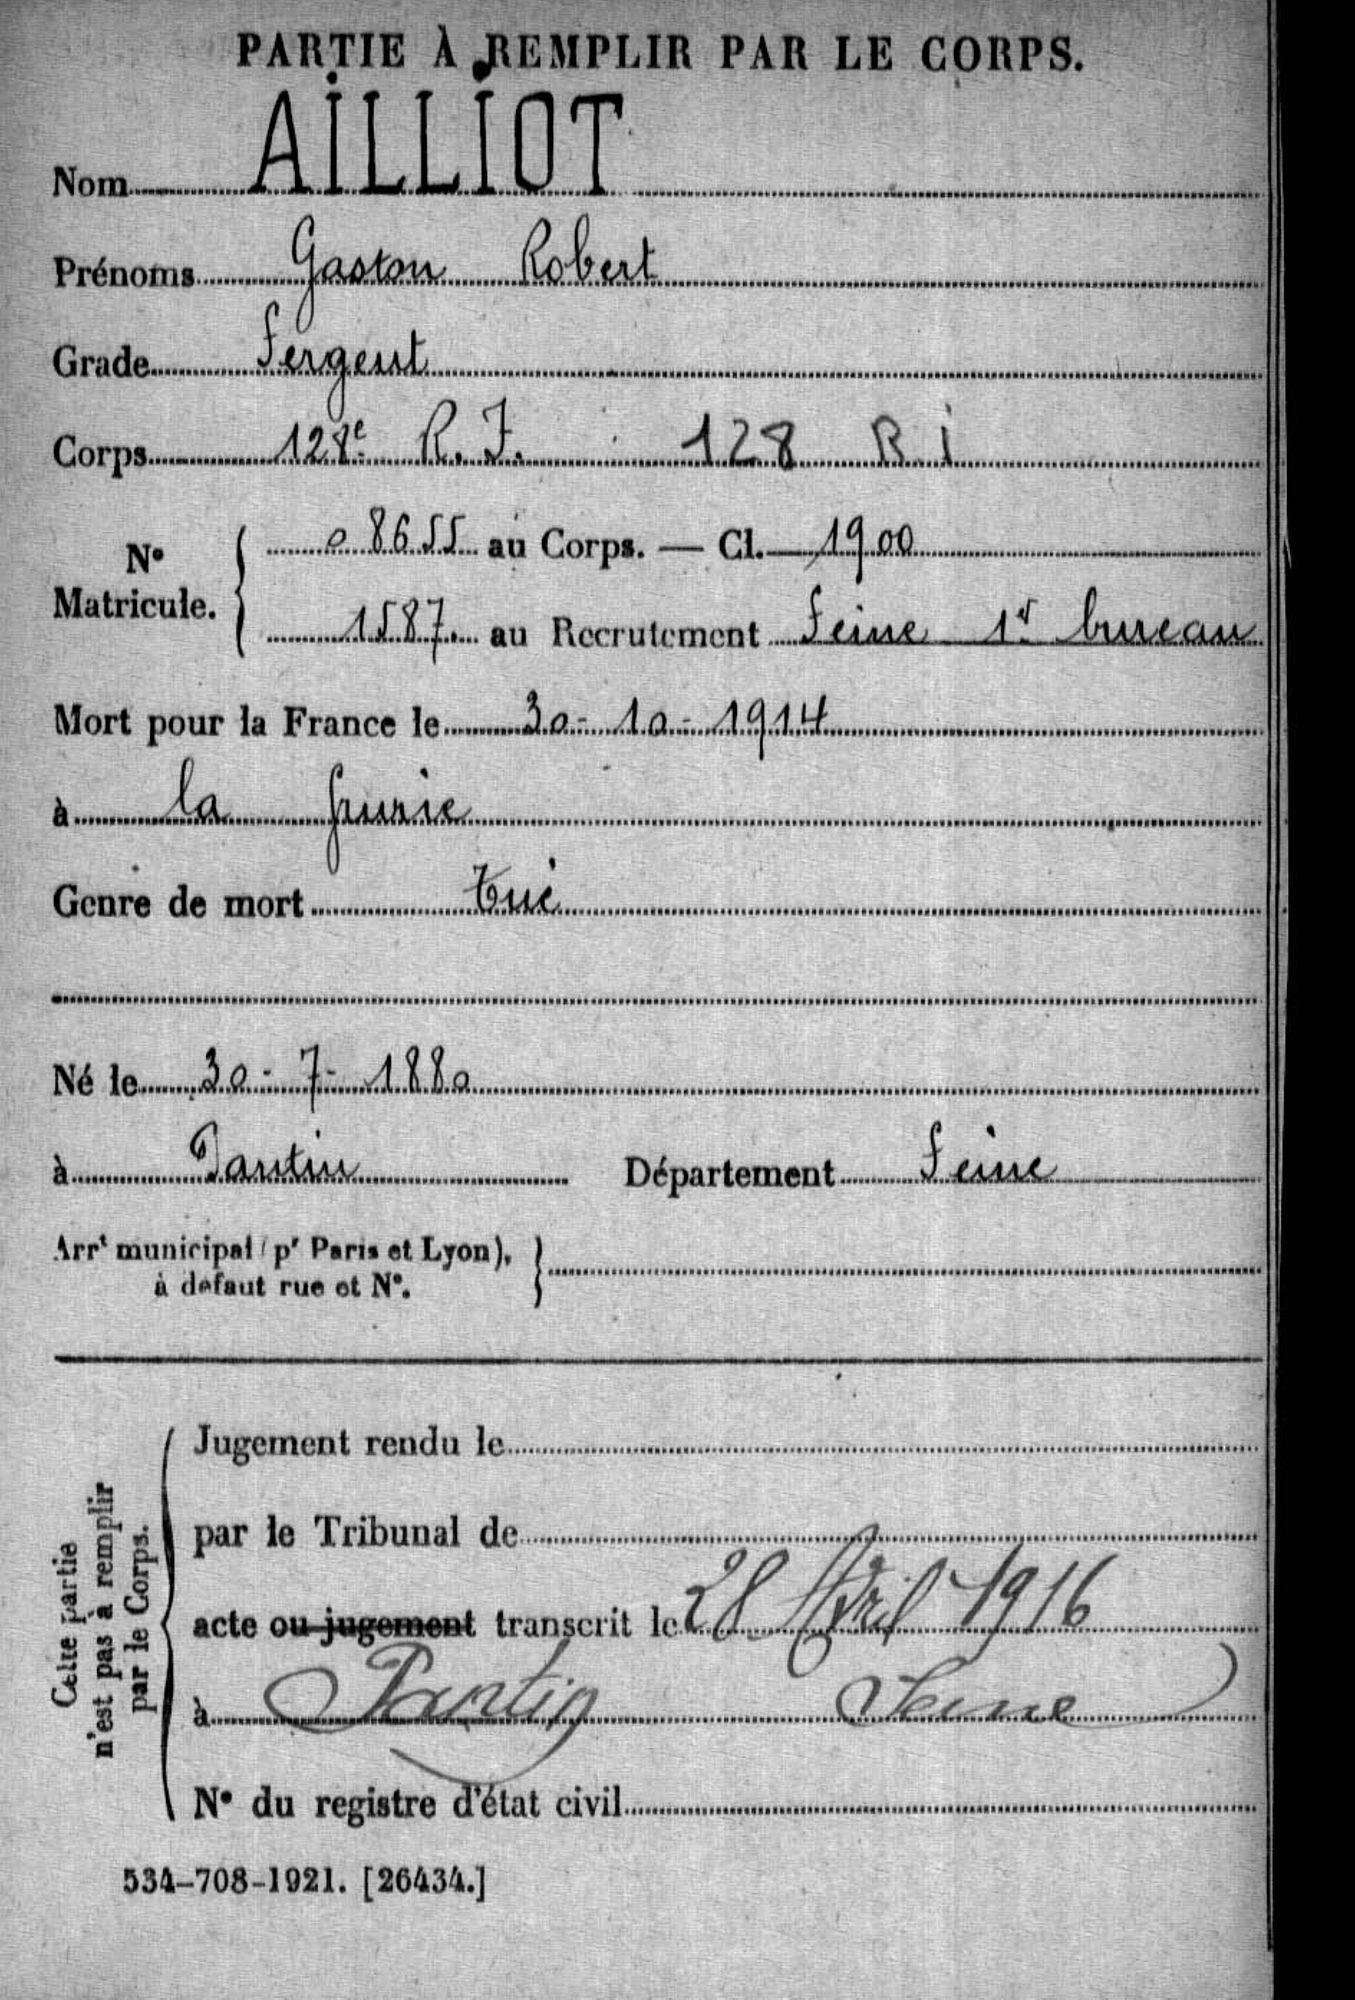 PARTIE À REMPLIR PAR LE CORPS.
Nom AILLIOT
Prénoms Gaston Robert
Grade Sergent
Corps 128e R.I. 128 R I
N° Matricule. { 08655 au Corps. — Cl. 1900
1587. au Recrutement Seine 1r bureau
Mort pour la France le 30-10-1914
à la grurie
Genre de mort tué
Né le 30-7-1880
à Pantin Département Seine
Arrt municipal (pr Paris et Lyon), }
à défaut rue et N°.
Cette partie
n'est pas à remplir
par le Corps.
Jugement rendu le
par le Tribunal de
acte ou jugement transcrit le 28 Avril 1916
à Pantin Seine
N° du registre d'état civil
534-708-1921. [26434.]